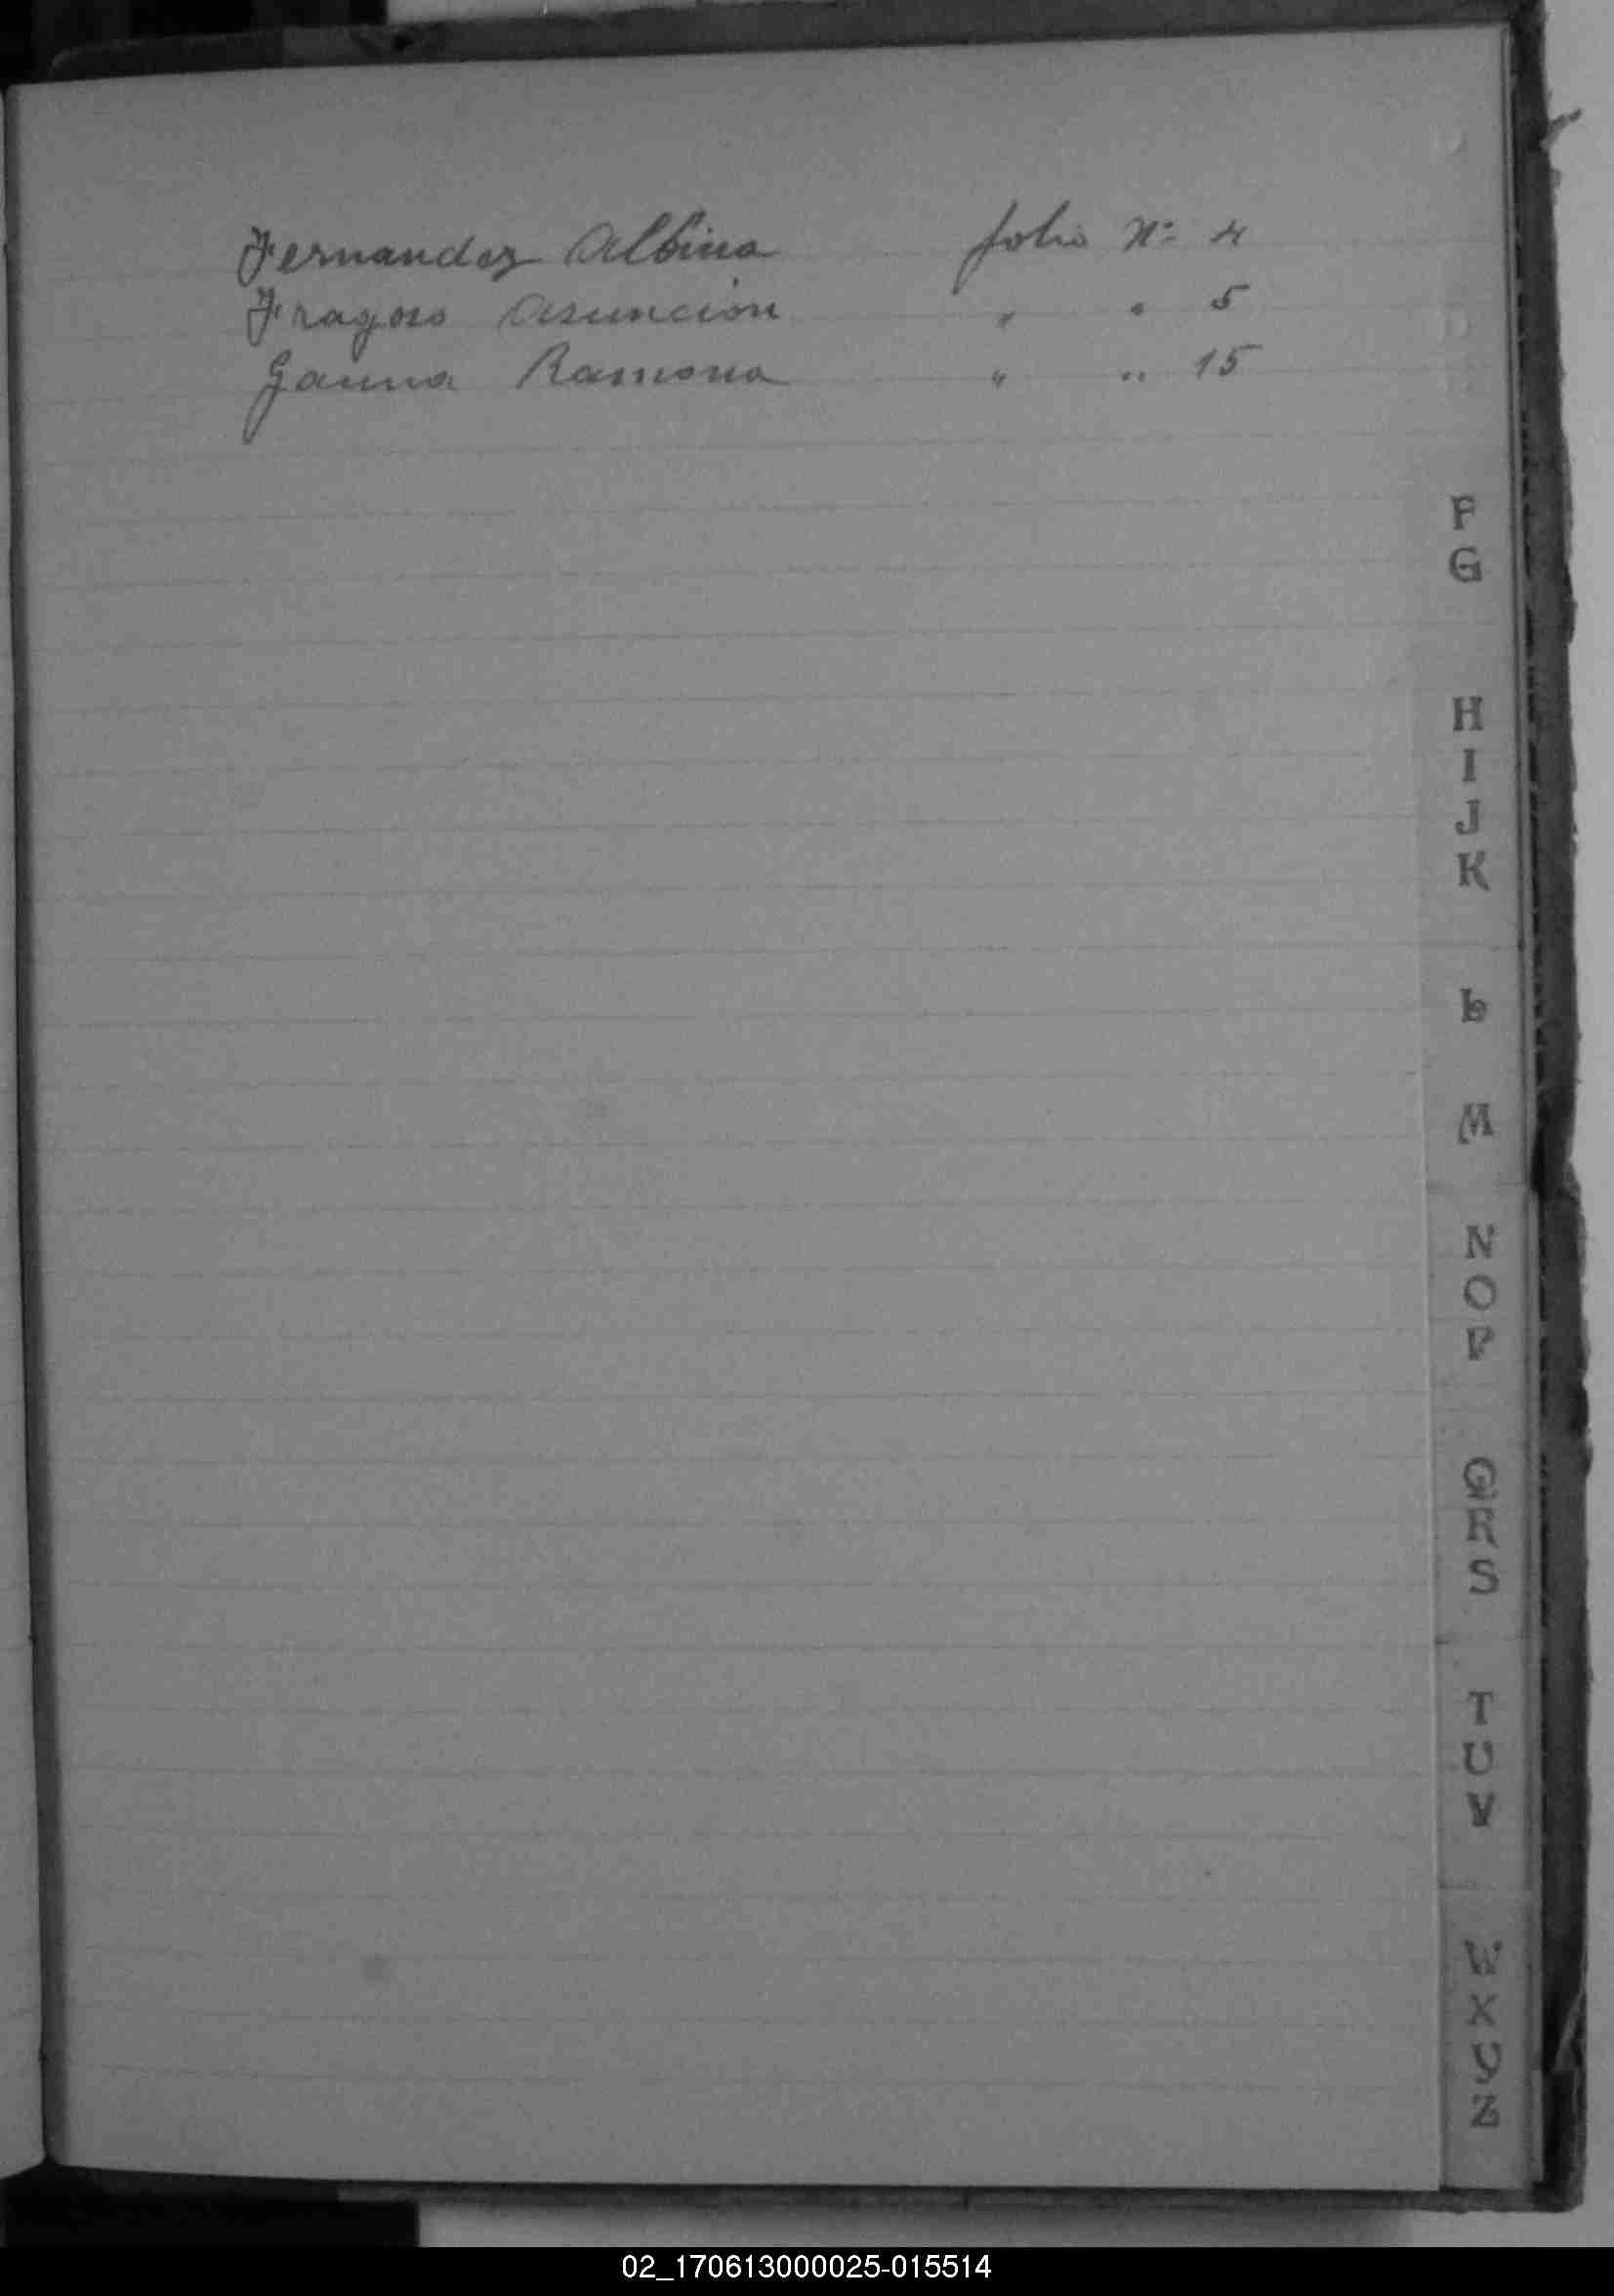 Fernandez Albina folio Nº 4
Fragoso Asuncion " " 5
Gauna Ramona " " 15
F
G
H
I
J
K
L
M
N
O
P
Q
R
S
T
U
V
W
X
Y
Z
02_170613000025-015514